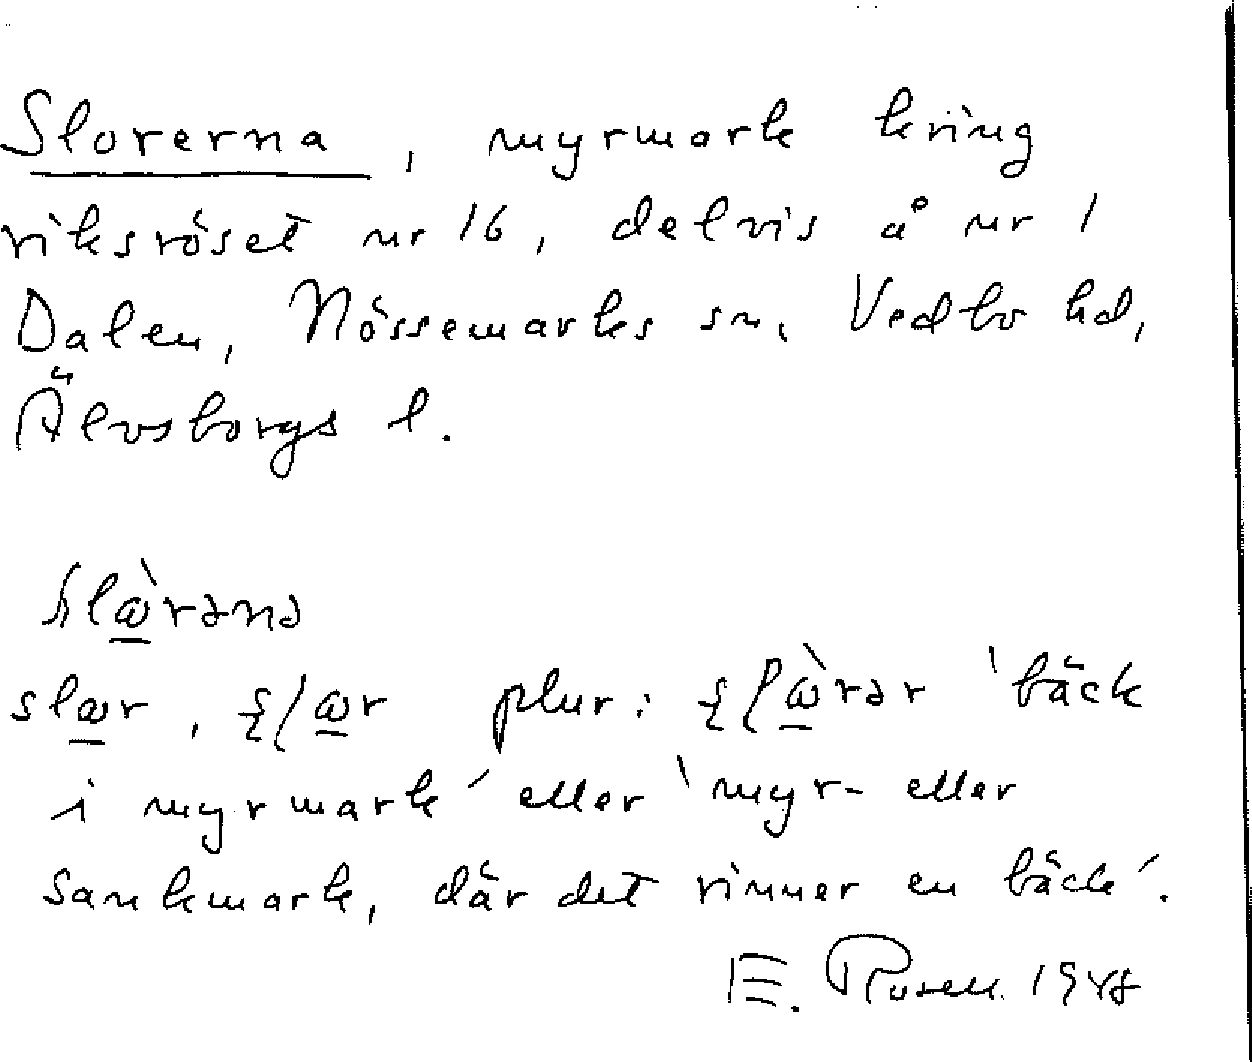 Slorerna, myrmark kring
riksröset nr 16, delvis å nr 1
Dalen, Nössemarks sn, Vedbo hd,
Älvsborgs l.
plur. 'bäck
i myrmark' eller 'myr- eller
sankmark, där det rinner en bäck'.
E. Rosell 1948